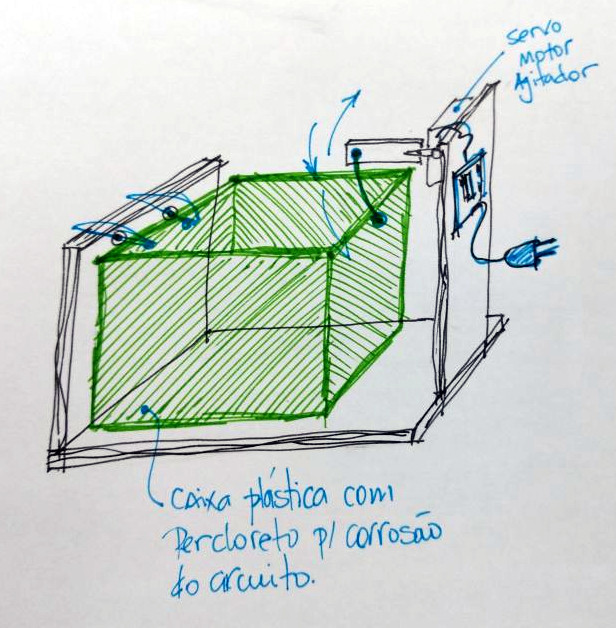 servo
Motor
Agitador
caixa plástica com
Percloreto p/ corrosão
do circuito.